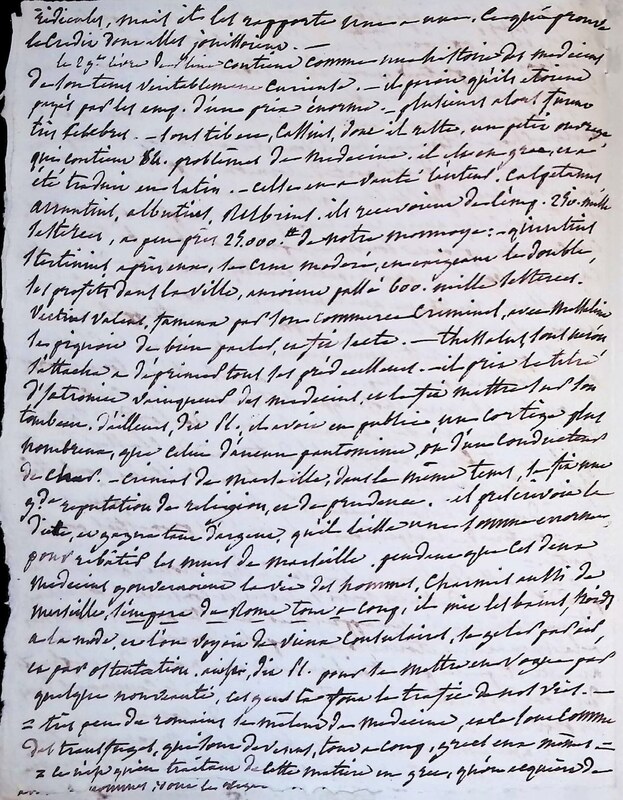 ridicules, mais il les rapporte une a une. ce qui prouve
le credit dont elles jouissoient. —
le 29e livre de pline contient comme une histoire des medecins
de son tems veritablement curieuse. — il paroit qu'ils etoient
payés par les emp. d'un prix enorme. — plusieurs alors furent
très celebres. — sous tibere, Cassius, dont il reste, un petit ouvrage
qui contient 84. problèmes de medecine. il est en grec, et a
été traduit en latin. — celse en a vanté Calpetanus
arruntius, albutius, Rubrius. ils recevoient de l'emp. 250. mille
sesterces, a peu près 25,000.tt de notre monnoye : — quintus
stertinius après eux, se crut moderé, en exigeant le double,
ses profits dans la ville, auroient passé 600. mille sesterces.
Vectius Valens, fameux par son commerce criminel, avec Messaline
se piquoit de bien parler, et fit secte. — thessalus, sous neron
s'attacha a deprimer tous ses prédecesseurs. — il prit le titre
d'iatronice vainqueur des medecins, et le fit mettre sur son
tombeau. d'ailleurs, dit Pl. il avoit en public un cortège plus
nombreux, que celui d'aucun pantomime, ou d'un conducteur
de chars. — crinias de marseille, dans le même tems, se fit une
gde reputation de religion, et de prudence. il prescrivoit la
diete, et gagna tant d'argent, qu'il laissa une somme enorme
pour rebâtir les murs de marseille. pendant que ces deux
medecins gouvernoient la vie des hommes, Charmis aussi de
merseille, s'empare de Rome tout a coup, il mit les bains froids
a la mode, et l'on voyoit de vieux consulaires, se geler par
et par ostentation, ainsi, dit Pl. pour se mettre en vogue par
quelque nouveauté, ces gens la font le trafic de nos vies. —
= très peu de romains se mêlent de medecine, et ce sont comme
des transfuges, qui sont devenus, tout a coup, grecs eux mêmes =
= ce n'est qu'en traitant de cette matiere en grec, qu'on acquiert de